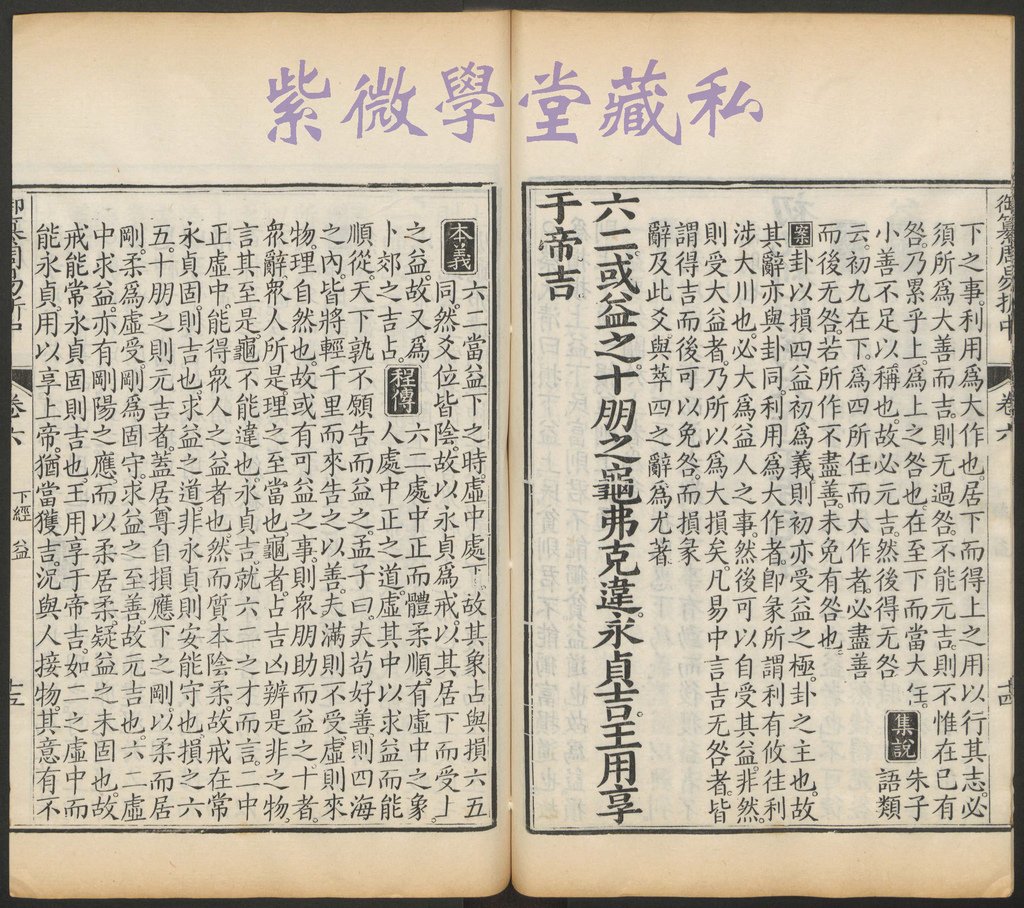 紫微學堂藏私
御纂周易折中
卷六
十四
下之事利用爲大作也居下而得上之用以行其志必
須所爲大善而吉則无過咎不能元吉則不惟在已有
咎乃累乎上爲上之咎也在至下而當大任
小善不足以稱也故必元吉然後得无咎
集說
朱子
語類
云初九在下爲四所任而大作者必盡善
而後无咎若所作不盡善未免有咎也
案卦以損四益初爲義則初亦受益之極卦之主也故
其辭亦與卦同利用爲大作者卽彖所謂利有攸往利
涉大川也必大爲益人之事然後可以自受其益非然
則受大益者乃所以爲大損矣凡易中言吉无咎者皆
謂得吉而後可以免咎而損彖
辭及此爻與萃四之辭爲尤著
六二或益之十朋之龜弗克違永貞吉王用享
于帝吉
本義
六二當益下之時虛中處下故其象占與損六五
同然爻位皆陰故以永貞爲戒以其居下而受上
之益故又爲
卜郊之吉占
程傳
六二處中正而體柔順有虛中之象
人處中正之道虛其中以求益而能
順從天下孰不願告而益之孟子曰夫苟好善則四海
之內皆將輕千里而來告之以善夫滿則不受虛則來
物理自然也故或有可益之事則衆朋助而益之十者
衆辭衆人所是理之至當也龜者占吉凶辨是非之物
言其至是龜不能違也永貞吉就六二之才而言二中
正虛中能得衆人之益者也然而質本陰柔故戒在常
永貞固則吉也求益之道非永貞則安能守也損之六
五十朋之則元吉者蓋居尊自損應下之剛以柔而居
剛柔爲虛受剛爲固守求益之至善故元吉也六二虛
中求益亦有剛陽之應而以柔居柔疑益之未固也故
戒能常永貞固則吉也王用享于帝吉如二之虛中而
能永貞用以享上帝猶當獲吉況與人接物其意有不
御纂周易折中
卷六
下經 益
十五